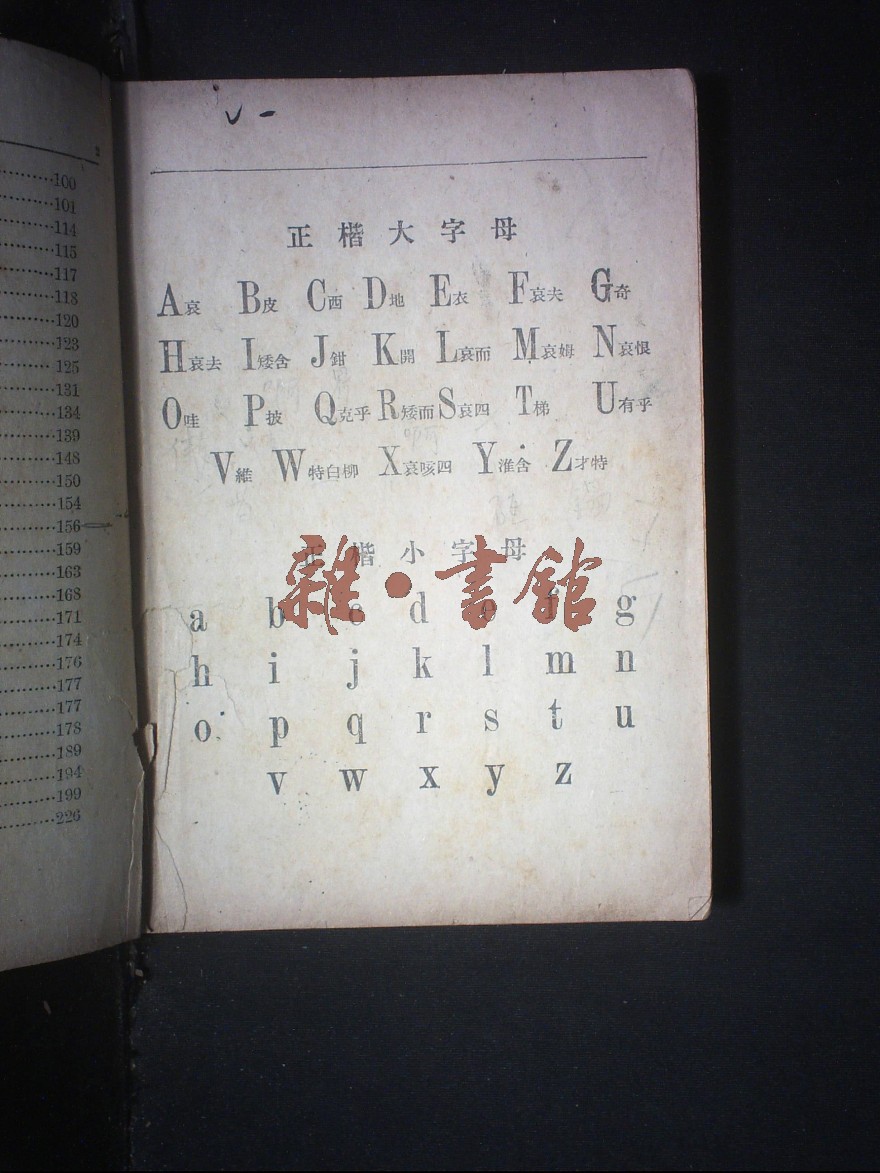 2
100
101
114
115
117
118
120
123
125
131
134
139
148
150
154
156
159
163
168
171
174
176
177
177
178
189
194
199
226
正楷大字母
A哀 B皮 C西 D地 E衣 F哀夫 G奇
H哀去 I矮含 J鉗 K開 L哀而 M哀姆 N哀恨
O哇 P披 Q克乎 R矮而 S哀四 T梯 U有乎
V維 W特白柳 X哀咳四 Y淮含 Z才特
正楷小字母
雜·書館
a b c d e f g
h i j k l m n
o p q r s t u
v w x y z